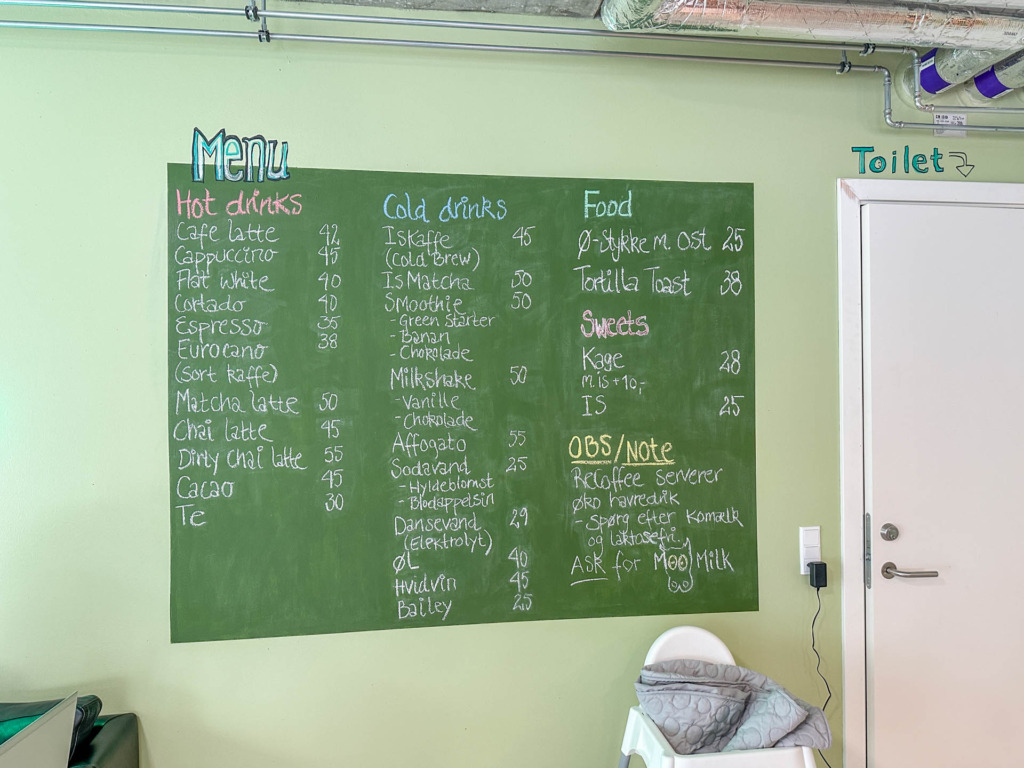 Menu
Toilet
Hot drinks
Cafe latte 42
Cappuccino 45
Flat white 40
Cortado 40
Espresso 35
Eurocano 38
(Sort kaffe)
Matcha latte 50
Chai latte 45
Dirty Chai latte 55
Cacao 45
Te 30
Cold drinks
Iskaffe 45
(Cold Brew)
Is Matcha 50
Smoothie 50
- Green Starter
- Banan
- Chokolade
Milkshake 50
- Vanille
- Chokolade
Affogato 55
Sodavand 25
- Hyldeblomst
- Blodappelsin
Dansevand 29
(Elektrolyt)
ØL 40
Hvidvin 45
Bailey 25
Food
Ø-Stykke m. Ost 25
Tortilla Toast 38
Sweets
Kage 28
m. is + 10,-
IS 25
OBS/Note
Recoffee serverer
Øko havredrik
- Spørg efter Komælk
og laktosefri.
ASK for Moo Milk